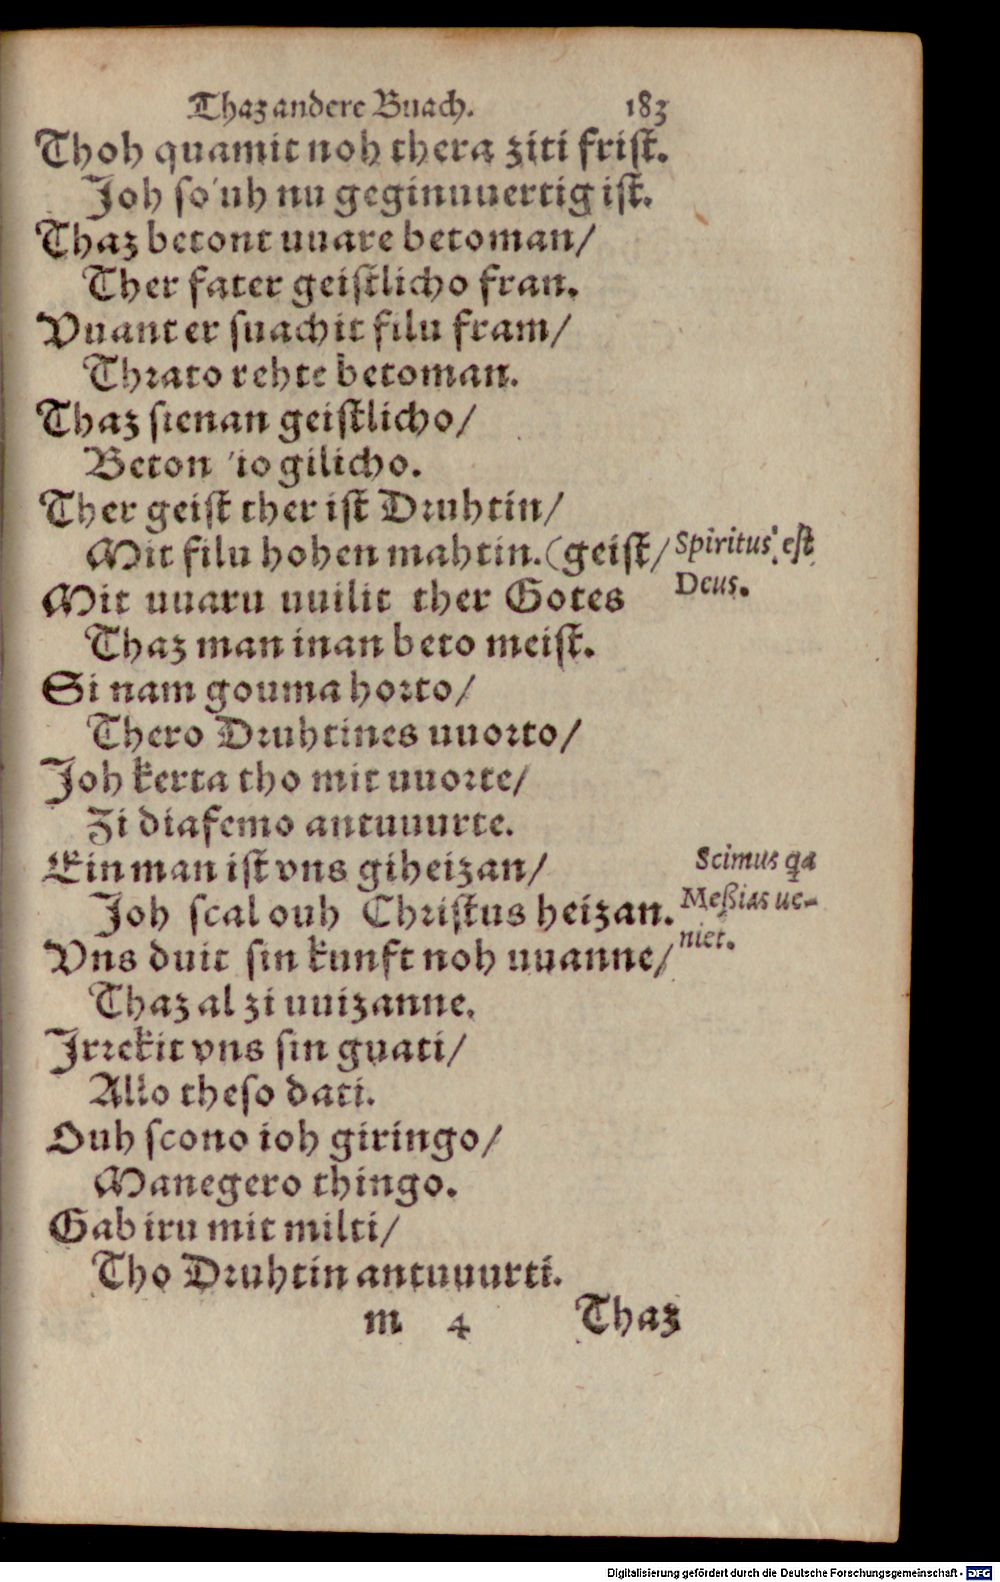 Thaz andere Buach. 183
Thoh quamit noh thera ziti frist.
Joh so'uh nu geginuuertig ist.
Thaz betont uuare betoman/
Ther fater geistlicho fran.
Vuant er suachit filu fram/
Thrato rehte betoman.
Thaz sienan geistlicho/
Beton 'io gilicho.
Ther geist ther ist Druhtin/
Mit filu hohen mahtin. (geist/ Spiritus est
Mit uuaru uuilit ther Gotes Deus.
Thaz man inan beto meist.
Si nam gouma horto/
Thero Druhtines uuorto/
Joh kerta tho mit uuorte/
Zi diafemo antuuurte.
Ein man ist vns giheizan/ Scimus qa
Joh scal ouh Christus heizan. Meßias ue-
Vns duit sin kunft noh uuanne/ niet.
Thaz al zi uuizanne.
Jrrekit vns sin guati/
Allo theso dati.
Ouh scono ioh giringo/
Manegero thingo.
Gab iru mit milti/
Tho Druhtin antuuurti.
m 4 Thaz
Digitalisierung gefördert durch die Deutsche Forschungsgemeinschaft - DFG